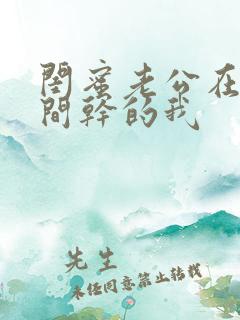 閨蜜老公在
間幹的我
先生
未经同意禁止转载